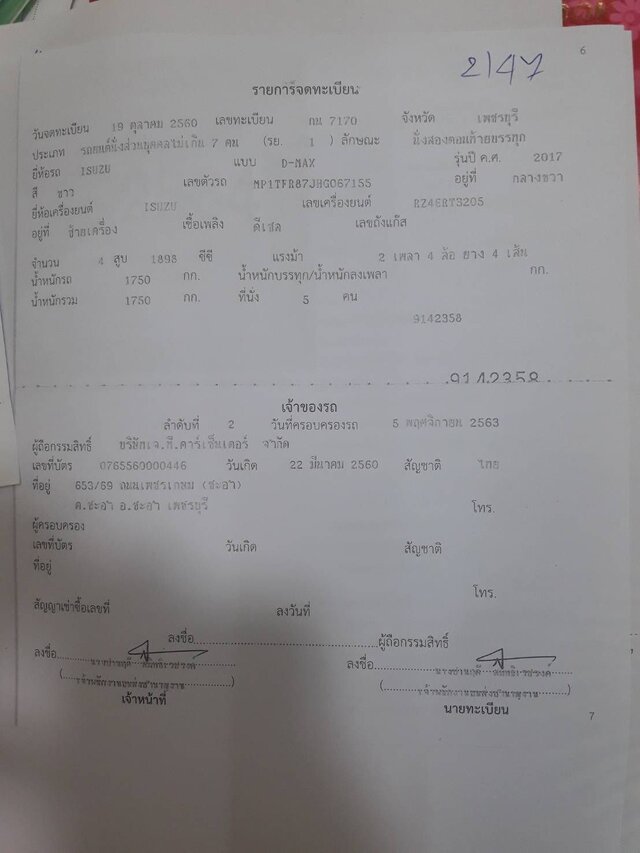 6
2147
รายการจดทะเบียน
วันจดทะเบียน 19 ตุลาคม 2560 เลขทะเบียน กน 7170 จังหวัด เพชรบุรี
ประเภท รถยนต์นั่งส่วนบุคคลไม่เกิน 7 คน (รย. 1 ) ลักษณะ นั่งสองตอนท้ายบรรทุก
ยี่ห้อรถ ISUZU แบบ D-MAX รุ่นปี ค.ศ. 2017
สี ขาว เลขตัวรถ MP1TFR87JHG067155 อยู่ที่ กลางขวา
ยี่ห้อเครื่องยนต์ ISUZU เลขเครื่องยนต์ RZ4ERT3205
อยู่ที่ ซ้ายเครื่อง เชื้อเพลิง ดีเซล เลขถังแก๊ส
จำนวน 4 สูบ 1898 ซีซี แรงม้า 2 เพลา 4 ล้อ ยาง 4 เส้น
น้ำหนักรถ 1750 กก. น้ำหนักบรรทุก/น้ำหนักลงเพลา กก.
น้ำหนักรวม 1750 กก. ที่นั่ง 5 คน
9142358
9142358
เจ้าของรถ
ลำดับที่ 2 วันที่ครอบครองรถ 5 พฤศจิกายน 2563
ผู้ถือกรรมสิทธิ์ บริษัทเจ.พี.คาร์เซ็นเตอร์ จำกัด
เลขที่บัตร 0765560000446 วันเกิด 22 มีนาคม 2560 สัญชาติ ไทย
ที่อยู่ 653/69 ถนนเพชรเกษม (ชะอำ)
ต.ชะอำ อ.ชะอำ เพชรบุรี โทร.
ผู้ครอบครอง
เลขที่บัตร วันเกิด สัญชาติ
ที่อยู่
โทร.
สัญญาเช่าซื้อเลขที่ ลงวันที่
ลงชื่อ ผู้ถือกรรมสิทธิ์
ลงชื่อ ลงชื่อ
เจ้าหน้าที่ นายทะเบียน
7